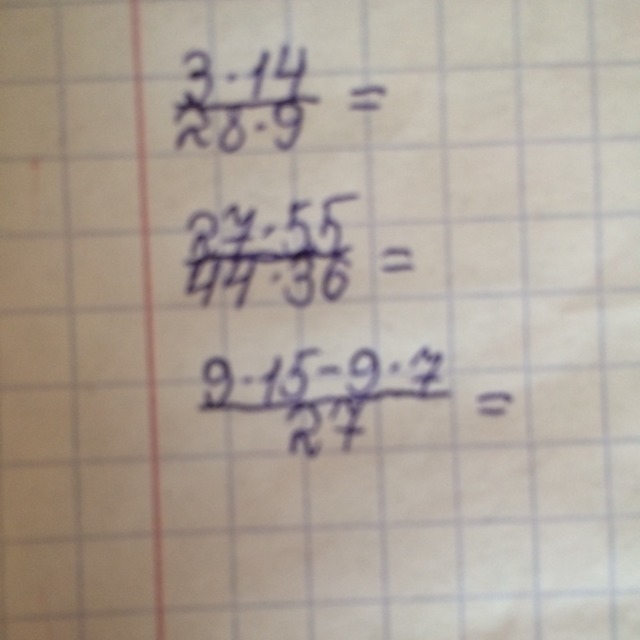 3·14
28·9 =
27·55
44·36 =
9·15-9·7
27 =